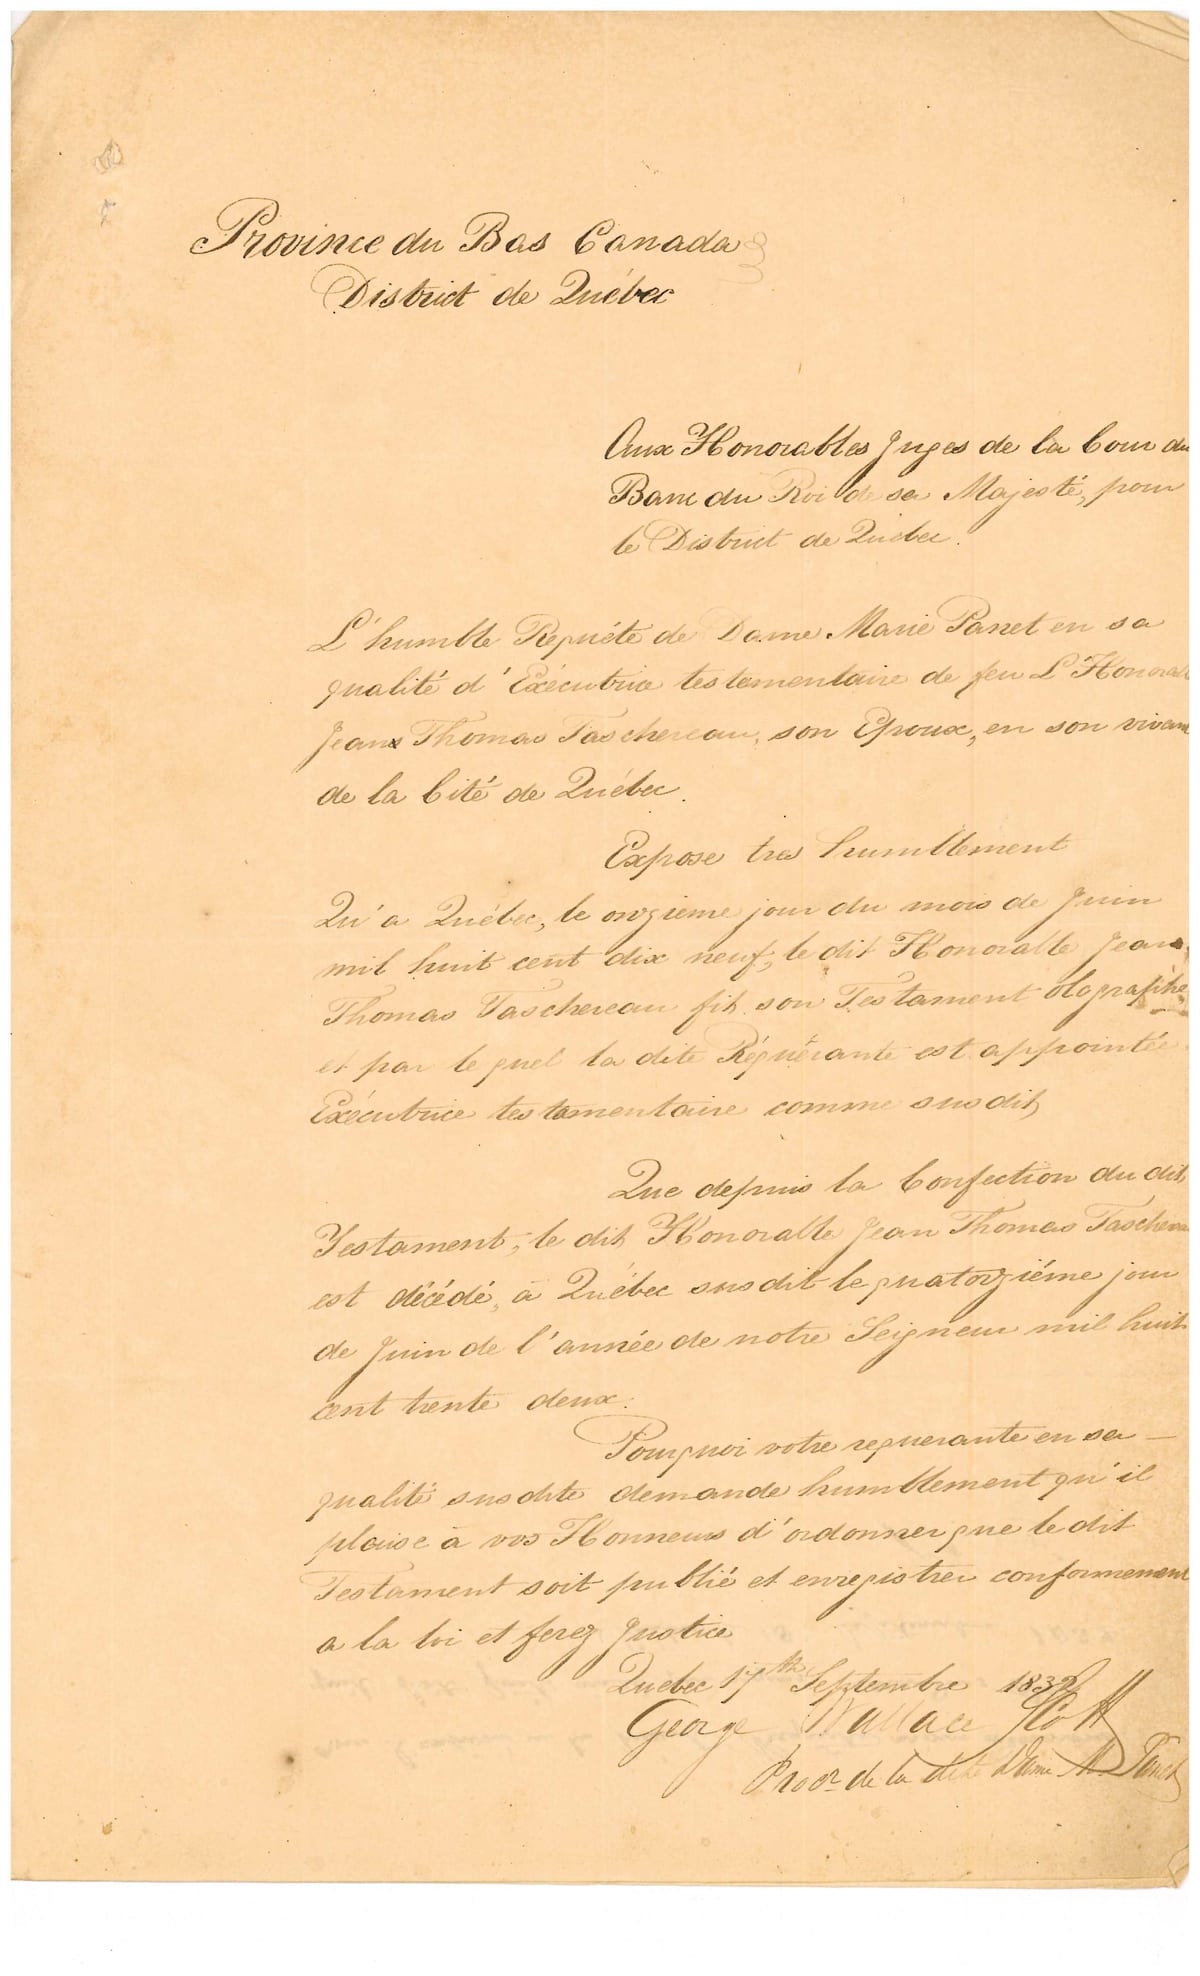 Province du Bas Canada
District de Québec
Aux Honorables Juges de la Cour du
Banc du Roi de sa Majesté, pour
le District de Quebec.
L'humble Requéte de Dame Marie Panet en sa
qualité d'Exécutrice testamentaire de feu L'Honorabl
Jean Thomas Taschereau, son Epoux, en son vivant
de la Cité de Québec.
Expose tres humblement
Qu'a Québec, le onzieme jour du mois de Juin
mil huit cent dix neuf, le dit Honorable Jean
Thomas Taschereau fit son Testament olographe,
et par lequel la dite Réquérante est appointée
Exécutrice testamentaire comme susdit,
Que depuis la Confection du dit
Testament, le dit Honorable Jean Thomas Taschereau
est décédé, à Québec susdit le quatorziéme jour
de Juin de l'année de notre Seigneur mil huit
cent trente deux.
Pourquoi votre requerante en sa
qualité susdite demande humblement qu'il
plaise à vos Honneurs d'ordonner que le dit
Testament soit publié et enregistrer conformement
a la loi et ferez Justice
Quebec 17th Septembre 1832
George Wallace
Procr de la dite Dame M. Panet